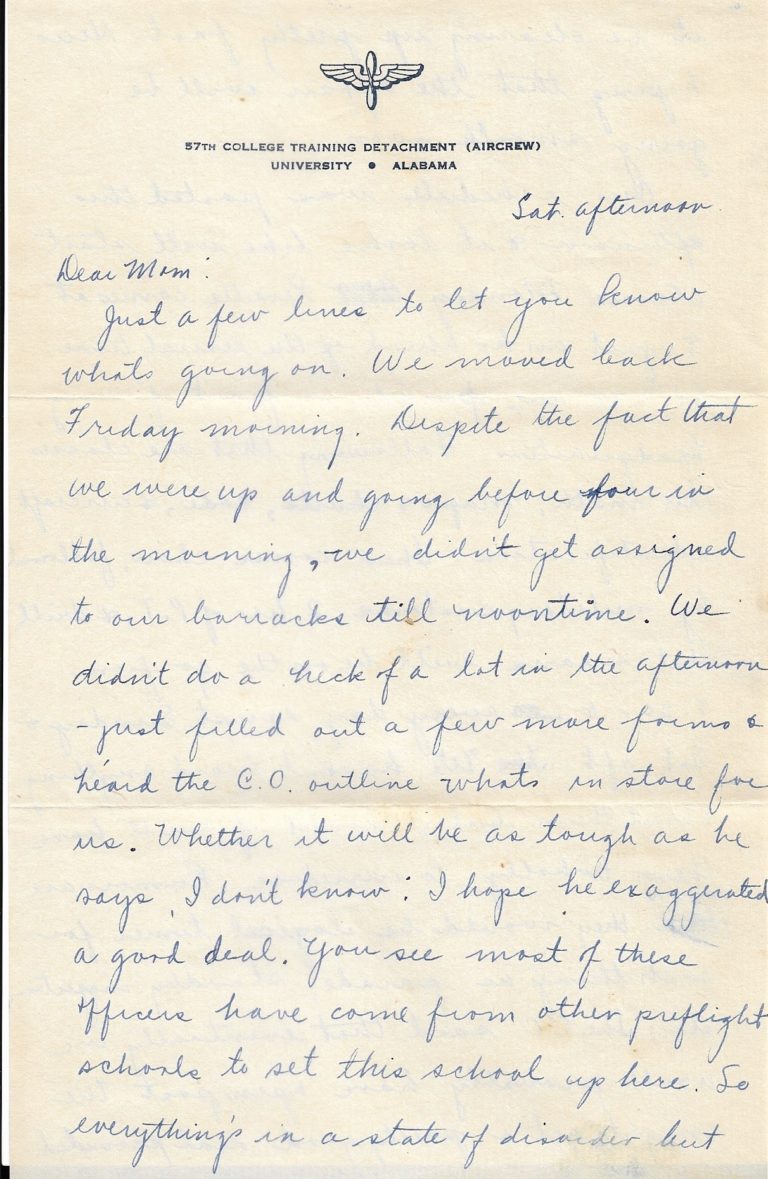 57TH COLLEGE TRAINING DETACHMENT (AIRCREW)
UNIVERSITY • ALABAMA
Sat. afternoon
Dear Mom:
Just a few lines to let you know
whats going on. We moved back
Friday morning. Despite the fact that
we were up and going before four in
the morning, we didn't get assigned
to our barracks till noontime. We
didn't do a heck of a lot in the afternoon
- just filled out a few more forms &
heard the C.O. outline whats in store for
us. Whether it will be as tough as he
says, I don't know: I hope he exaggerated
a good deal. You see most of these
officers have come from other preflight
schools to set this school up here. So
everything's in a state of disorder but